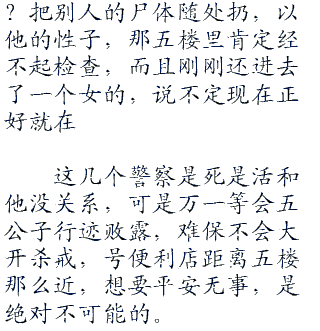 ？把别人的尸体随处扔，以
他的性子，那五楼里肯定经
不起检查，而且刚刚还进去
了一个女的，说不定现在正
好就在
这几个警察是死是活和
他没关系，可是万一等会五
公子行迹败露，难保不会大
开杀戒，号便利店距离五楼
那么近，想要平安无事，是
绝对不可能的。